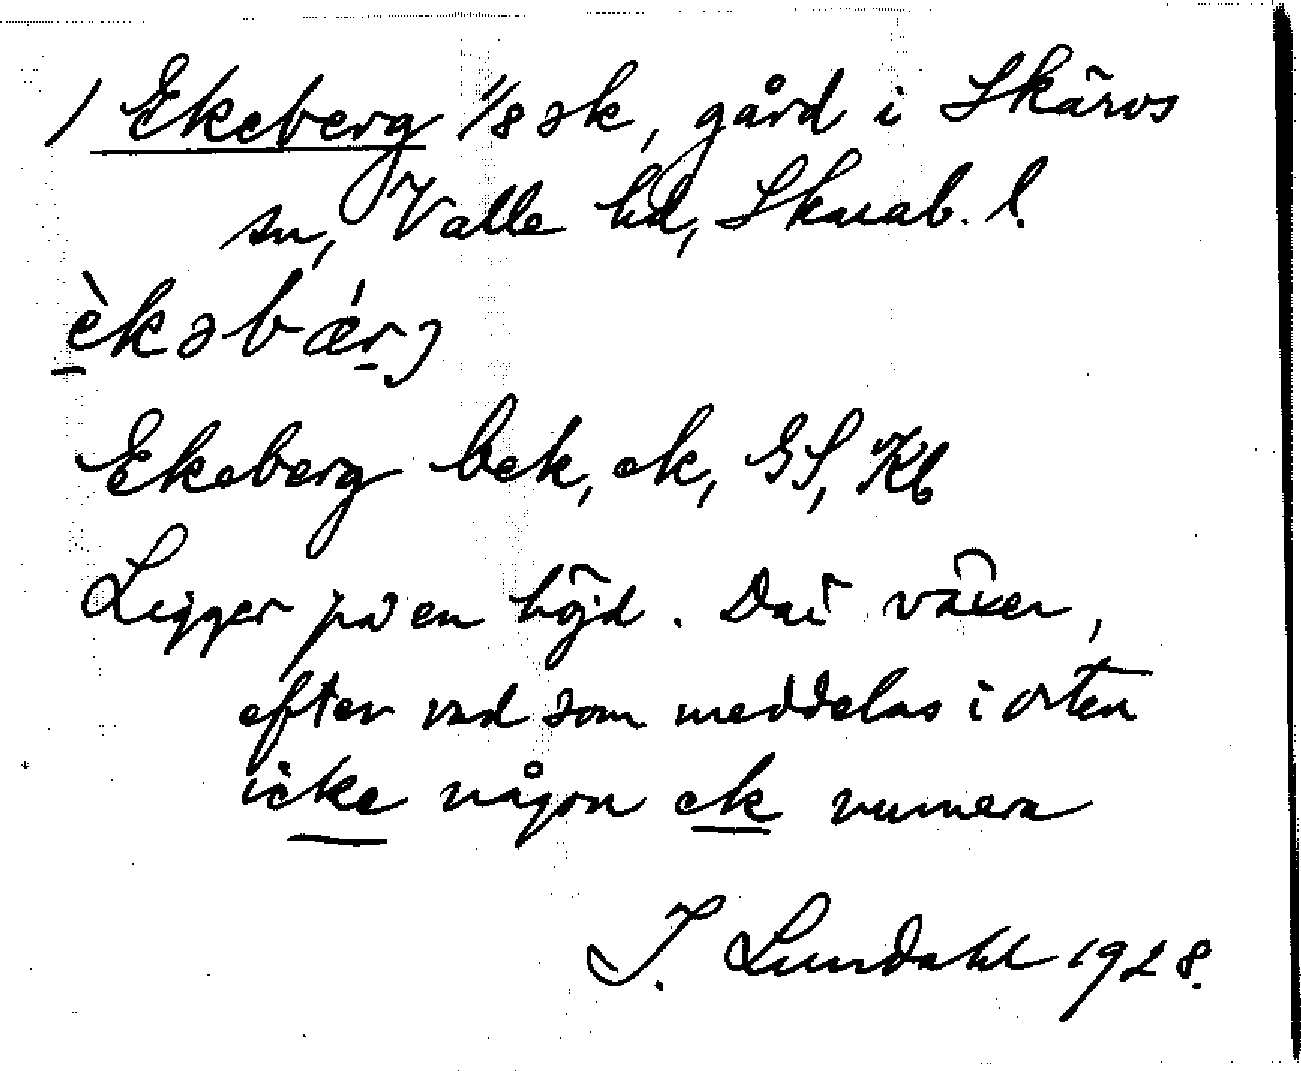 / Ekeberg 1/8 sk, gård i Skärvs
sn, Valle hd, Skarab. l.
èkəbǽrj
Ekeberg bek, ek, GS, Kb
Ligger på en höjd. Där växer,
efter vad som meddelas i orten
icke någon ek numera
I. Lundahl 1928.